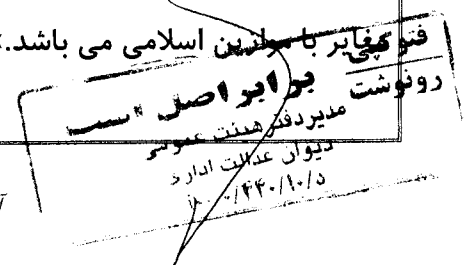 مغایر با موازین اسلامی می باشد.»
فتوکپی
رونوشت
برابر اصل است
مدیر دفتر هیئت عمومی
دیوان عدالت اداری
/۴۴۰/۱۰/۵